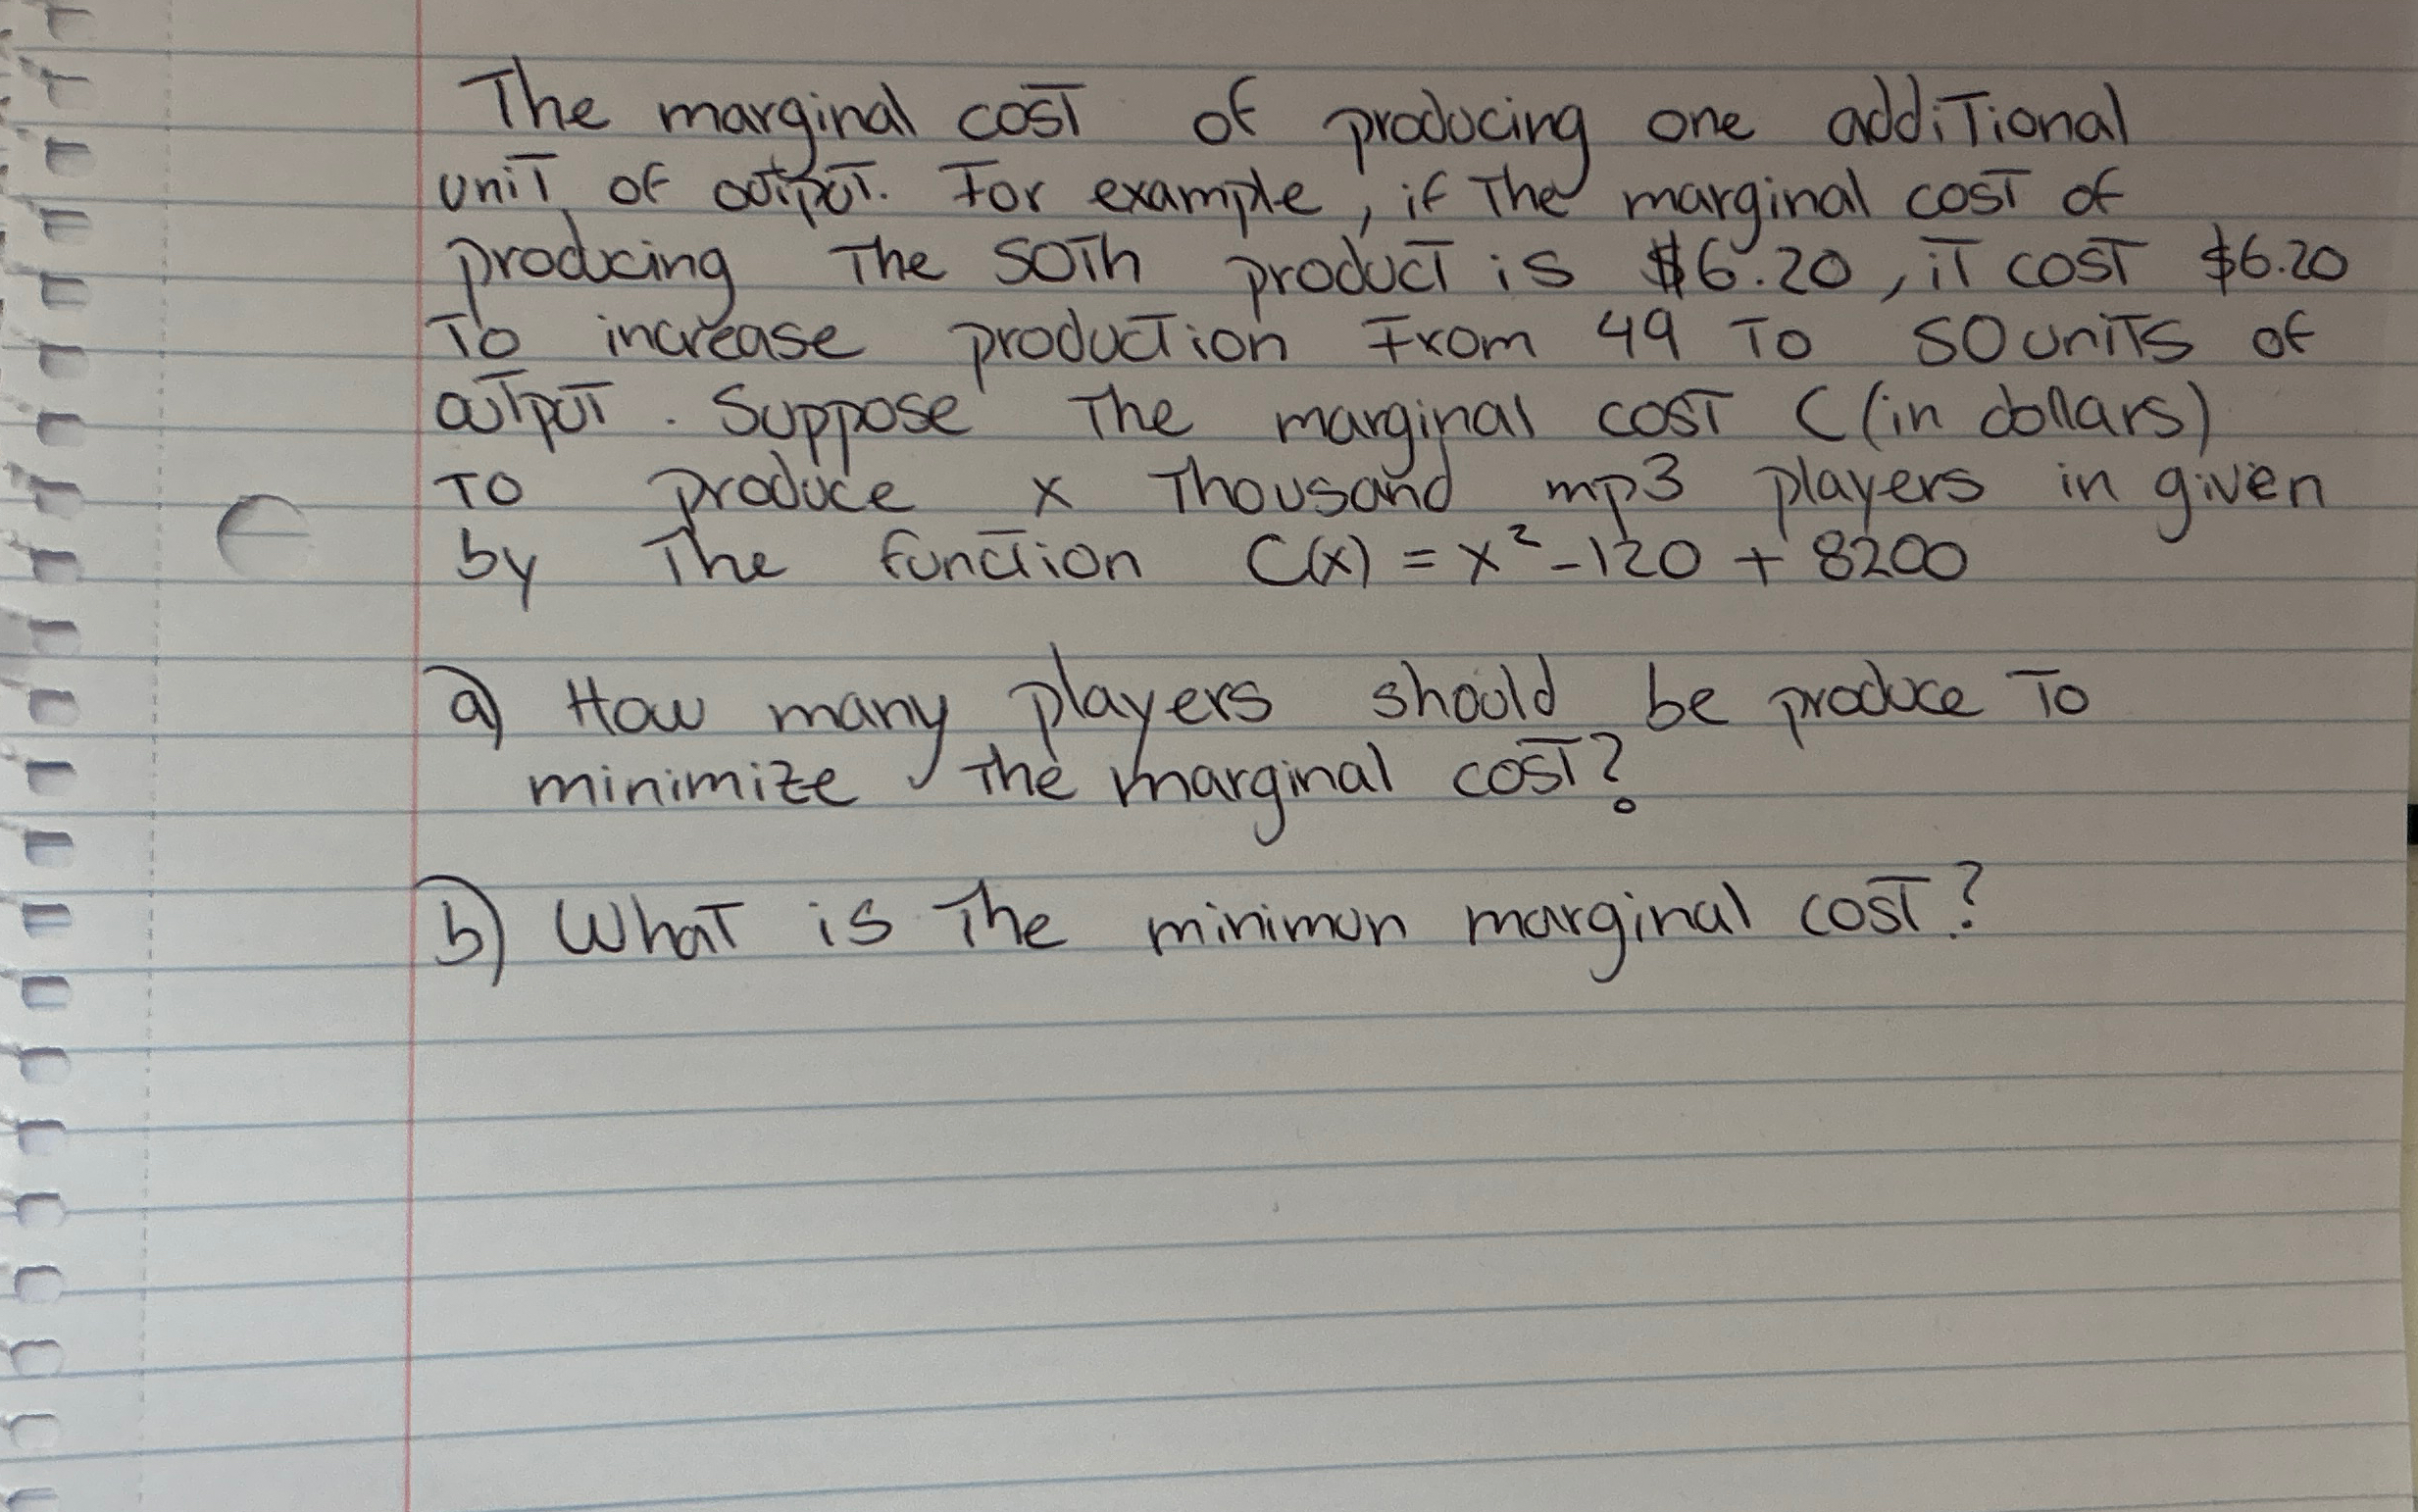 The marginal cost of producing one additional
unit of output. For example, if the marginal cost of
producing the 50th product is $6.20, it cost $6.20
to increase production from 49 to 50 units of
output. Suppose the marginal cost C (in dollars)
to produce x thousand mp3 players in given
by the function C(x) = x² - 120 + 8200
a) How many players should be produce to
minimize the marginal cost?
b) What is the minimun marginal cost?